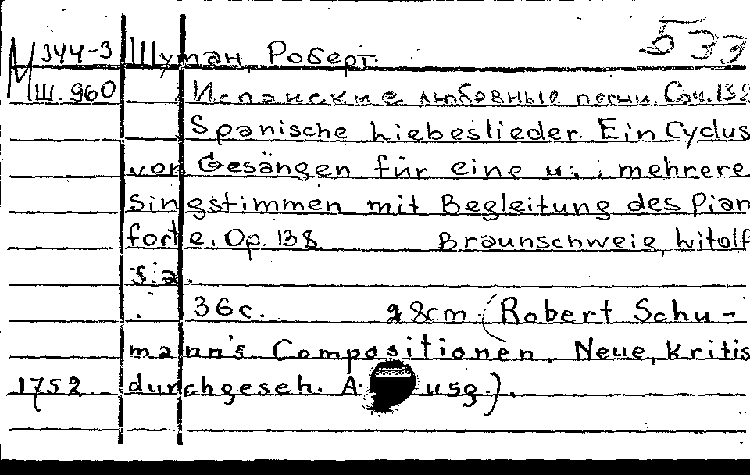 533
М 344-3 Шуман, Роберт.
Ш. 960 Испанские любовные песни. Соч. 138
Spanische Liebeslieder. Ein Cyclus
von Gesängen für eine u. mehrere
Singstimmen mit Begleitung des Pian
forte. Op. 138 Braunschweig, Litolf
s.a.
36 с. 28cm. (Robert Schu-
mann's Compositionen. Neue, kritis
1752 durchgeseh. A usg.).